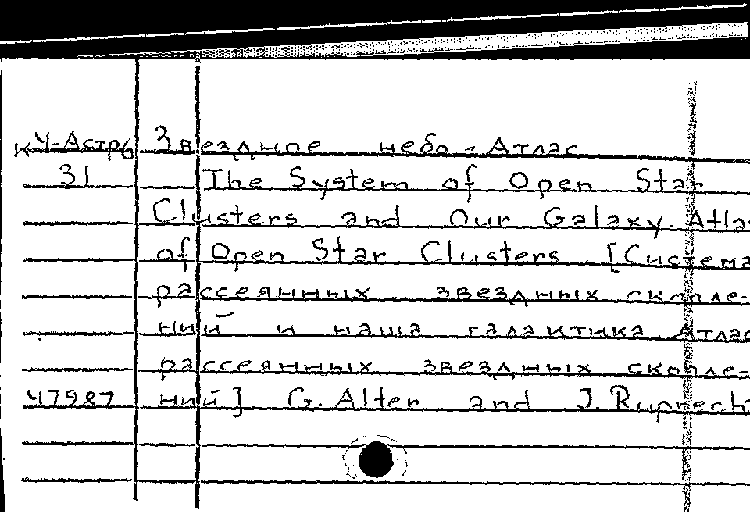 Ч-Астр Звездное небо - Атлас
31 The System of Open Star
Clusters and Our Galaxy. Atlas
of Open Star Clusters [Система
рассеянных звездных скопле-
ний и наша галактика Атлас
рассеянных звездных скопле-
47987 ний] G. Alter and J. Ruprecht